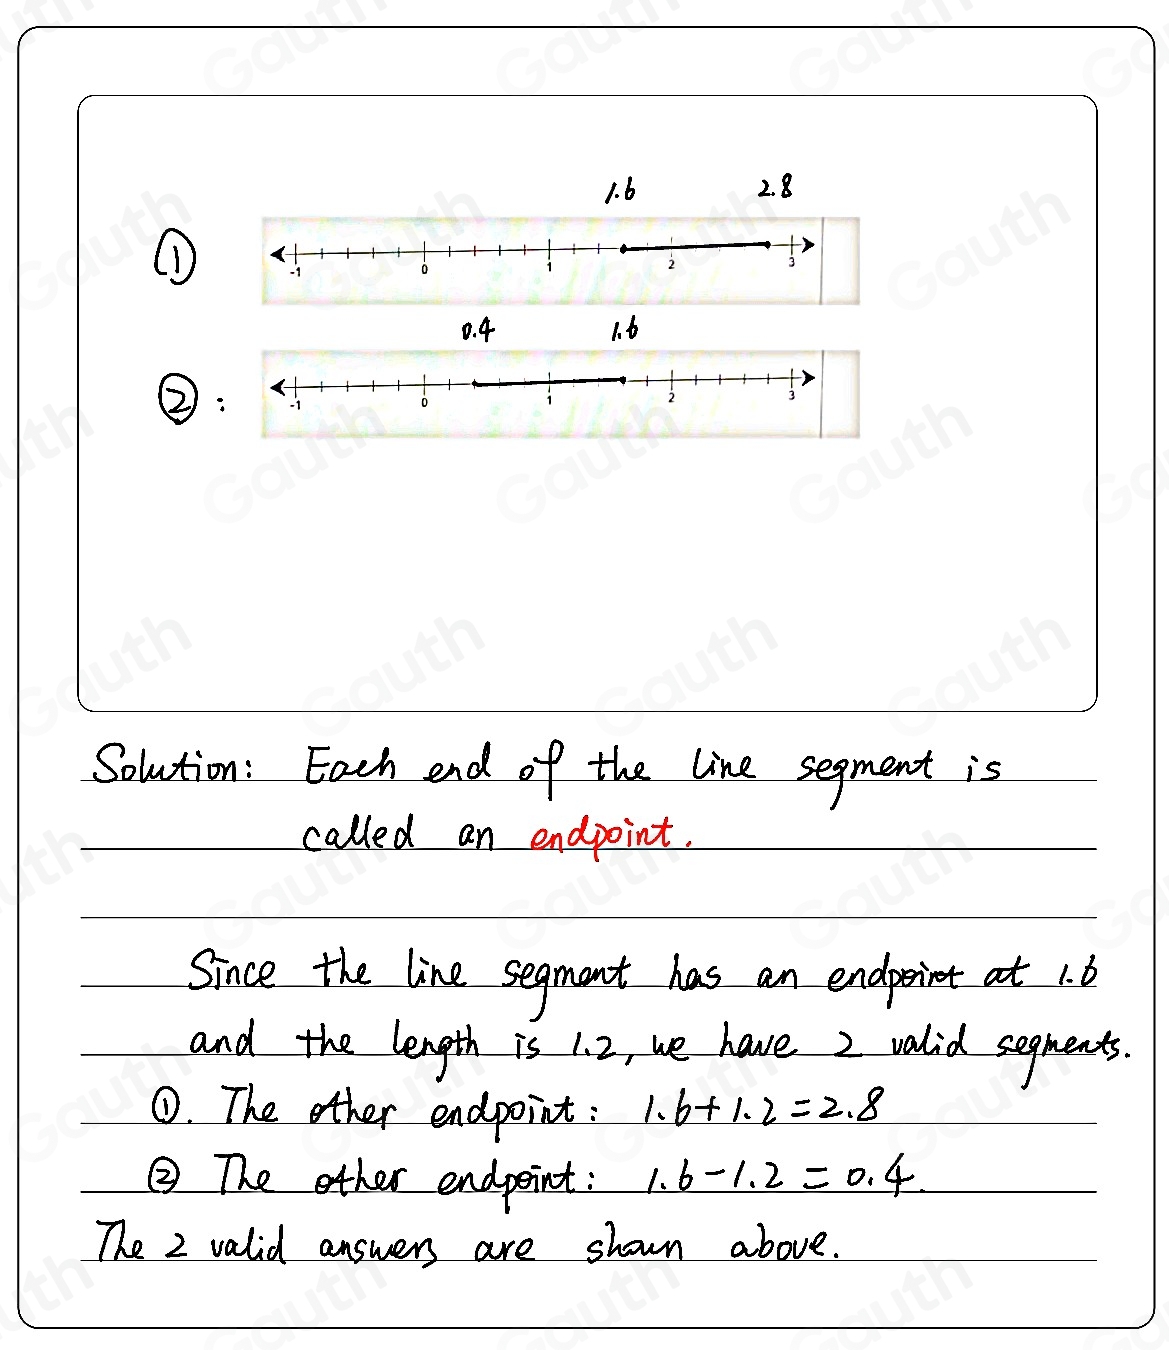 1.6 2.8
①
-1 0 1 2 3
0.4 1.6
② :
-1 0 1 2 3
Solution: Each end of the line segment is
called an endpoint.
Since the line segment has an endpoint at 1.6
and the length is 1.2, we have 2 valid segments.
①. The other endpoint: 1.6+1.2=2.8
② The other endpoint: 1.6-1.2=0.4.
The 2 valid answers are shown above.
Gauth